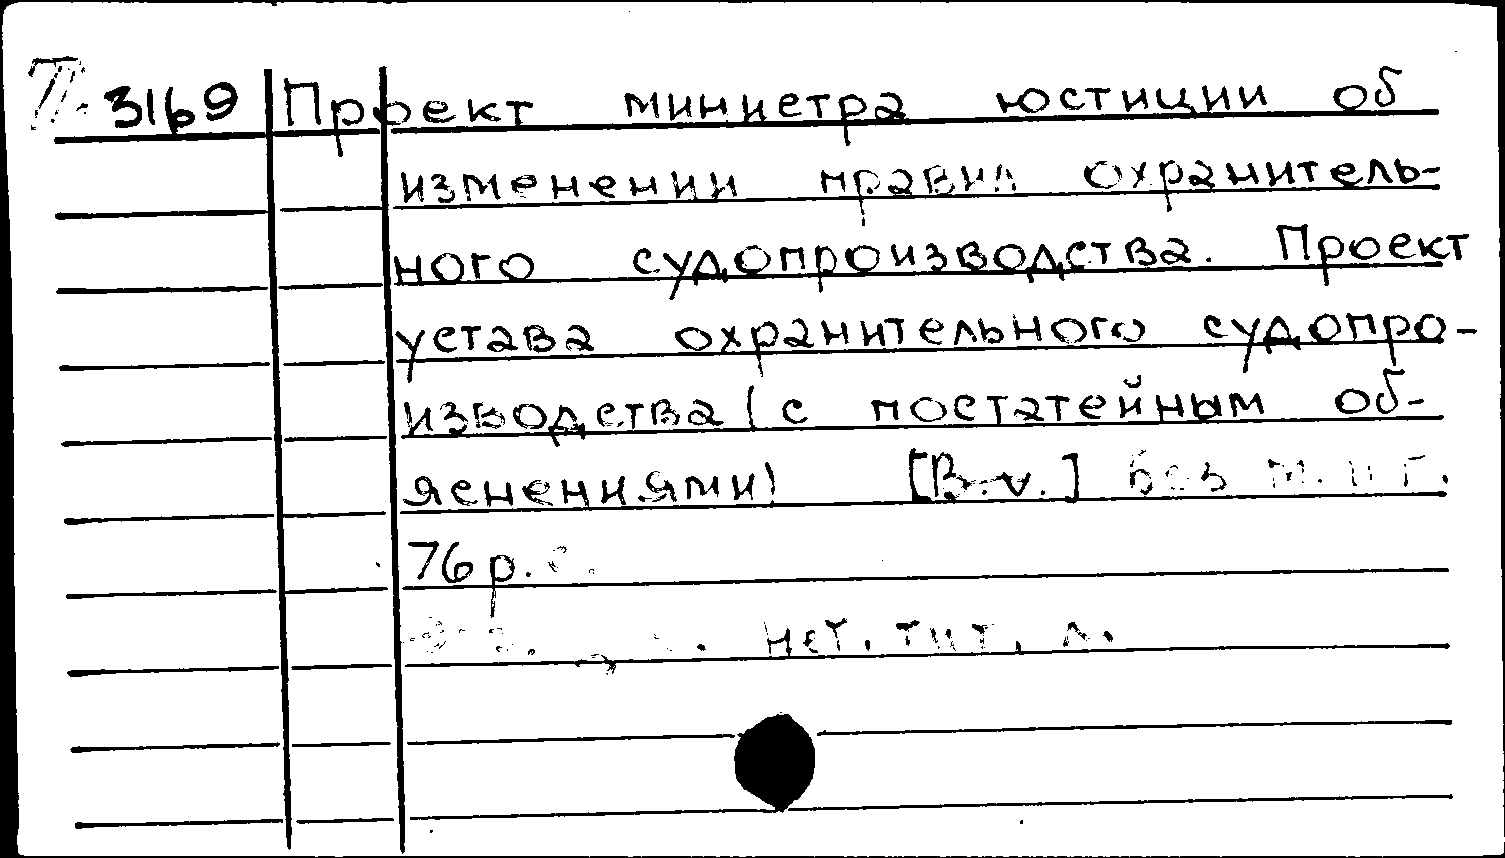 П. 3169 Проект министра юстиции об
изменении правил охранитель-
ного судопроизводства. Проект
устава охранительного судопро-
изводства (с постатейным об-
яснениями) [B.v.] без м. и г.
76 р.
нет. тит. л.